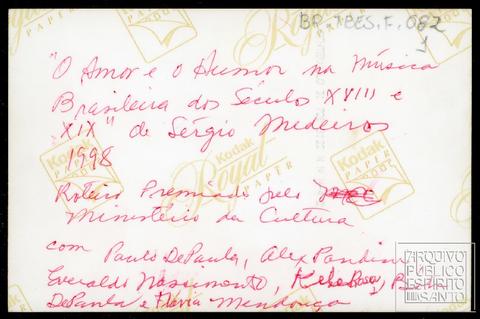 BR.TBES.F.082
"O Amor e o Humor na Música
Brasileira dos Séculos XVIII e
XIX" de Sérgio Medeiros
1998
Roteiro Premiado pelo
Ministério da Cultura
com Paulo DePaula, Alex Pandini
Everaldo Nascimento,
DePaula e Flavia Mendonça
Kodak
Royal
PAPER
ARQUIVO
PÚBLICO
ESPÍRITO
SANTO